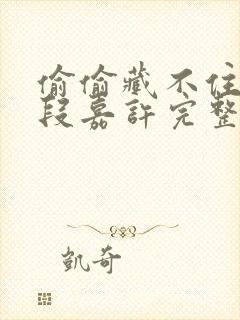 偷偷藏不住
段嘉許完整
凱奇